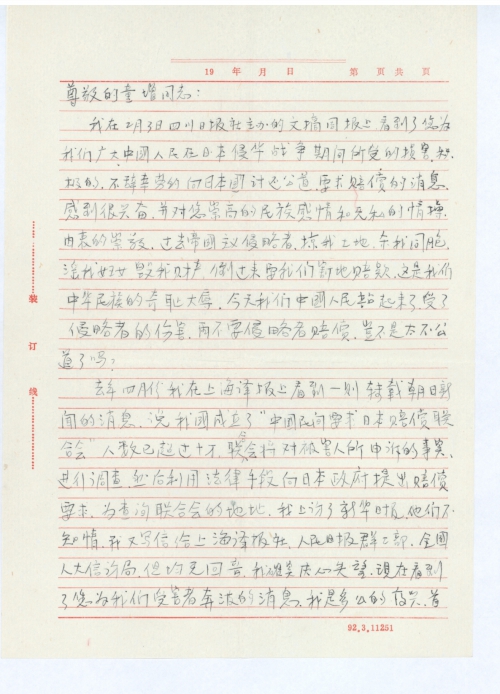 19 年 月 日 第 页 共 页
尊敬的童增同志:
我在2月3日四川日报社主办的文摘周报上看到了您为
我们广大中國人民在日本侵华战争期间所受的损害,积
极的,不辞辛劳的向日本國讨还公道,要求赔偿的消息,
感到很兴奋,并对您崇高的民族感情和无私的情操,
由衷的崇敬。过去帝國主义侵略者,掠我土地,杀我同胞,
淫我妇女,毁我财产,倒过来要我们割地赔款,这是我们
中华民族的奇耻大辱,今天我们中國人民站起来了,受了
侵略者的伤害,而不要侵略者赔偿,岂不是太不公
道了吗?
去年四月份我在上海译报上看到一则转载朝日新
闻的消息,说我國成立了“中國民间要求日本赔偿联
合会”人数已超过十万,联合会将对被害人所申诉的事实,
进行调查,然后利用法律手段向日本政府提出赔偿
要求,为查询联合会的地址,我上访了新华日报,他们不
知情,我又写信给上海译报社,人民日报群工部,全國
人大信访局,但均无回音,我确实灰心失望,现在看到
了您为我们受害者奔波的消息,我是多么的
装 订 线
92.3.11251